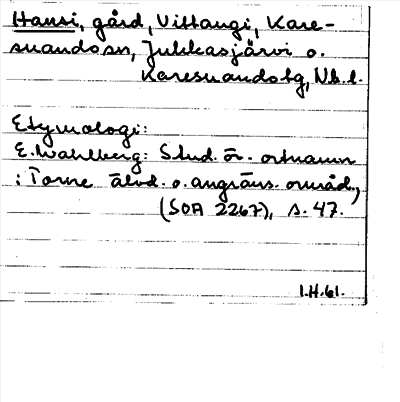 Hansi, gård, Vittangi, Kare-
suandosn, Jukkasjärvi o.
Karesuandotg, Nb. l.
Etymologi:
E. Wahlberg: Stud. ö. ortnamn
i Torne älvd. o. angräns. områd.,
(SOA 2267), s. 47.
1.H.61.